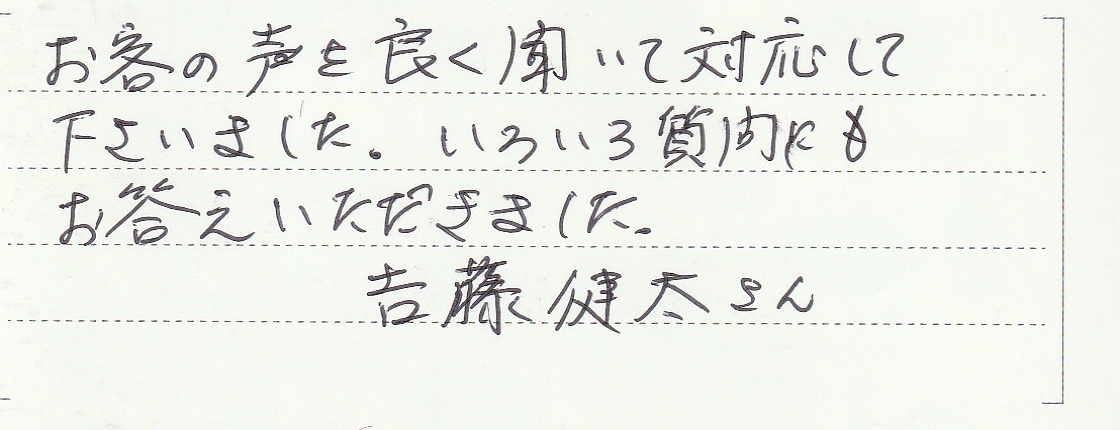 お客の声を良く聞いて対応して
下さいました。いろいろ質問にも
お答えいただきました。
吉藤健太さん